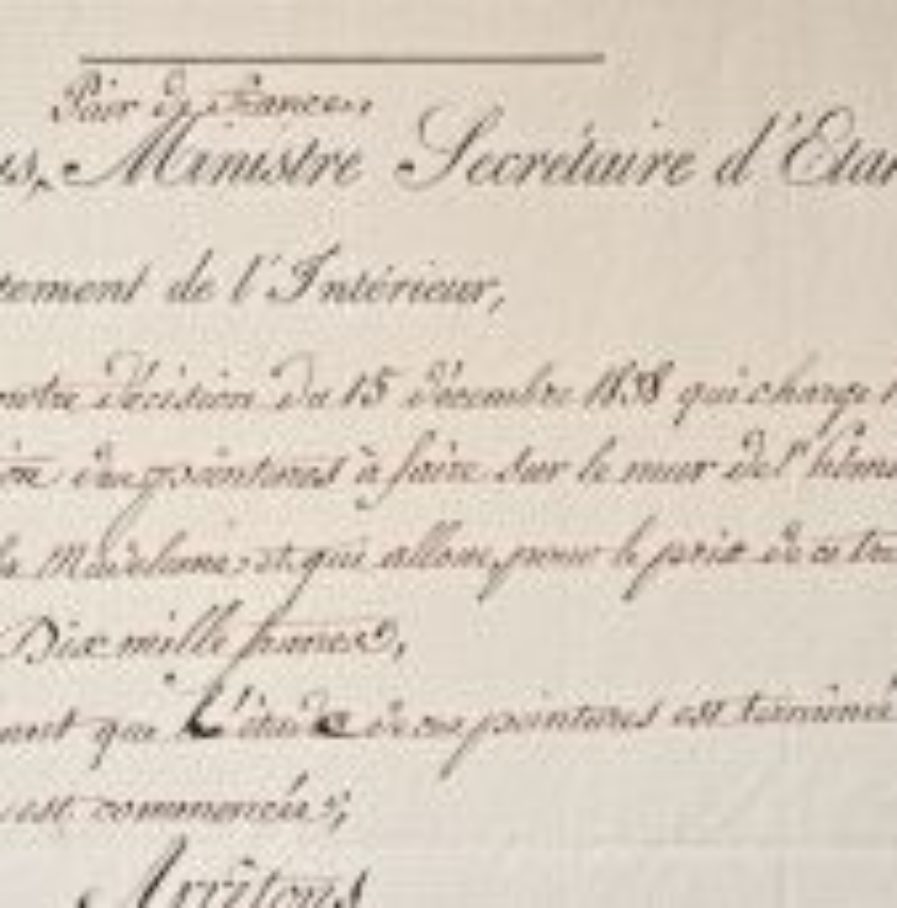 Pair de France
us, Ministre Secrétaire d'Etat
tement de l'Intérieur,
notre décision du 15 décembre 1838 qui charge
ion des peintures à faire sur le mur de l'hémi
la Madelaine, et qui alloue, pour le prix de ce tra
Dix mille francs,
ant que l'étude de ces peintures est terminée
est commencée;
Arrêtons